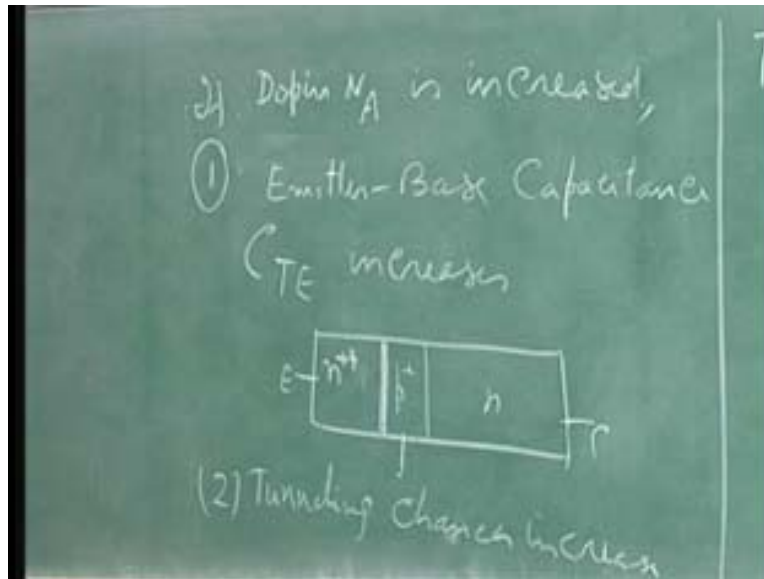 If Dopin N_A is increased,
① Emitter-Base Capacitance
C_TE increases
E n++ p+ n C
(2) Tunneling chances increase
T